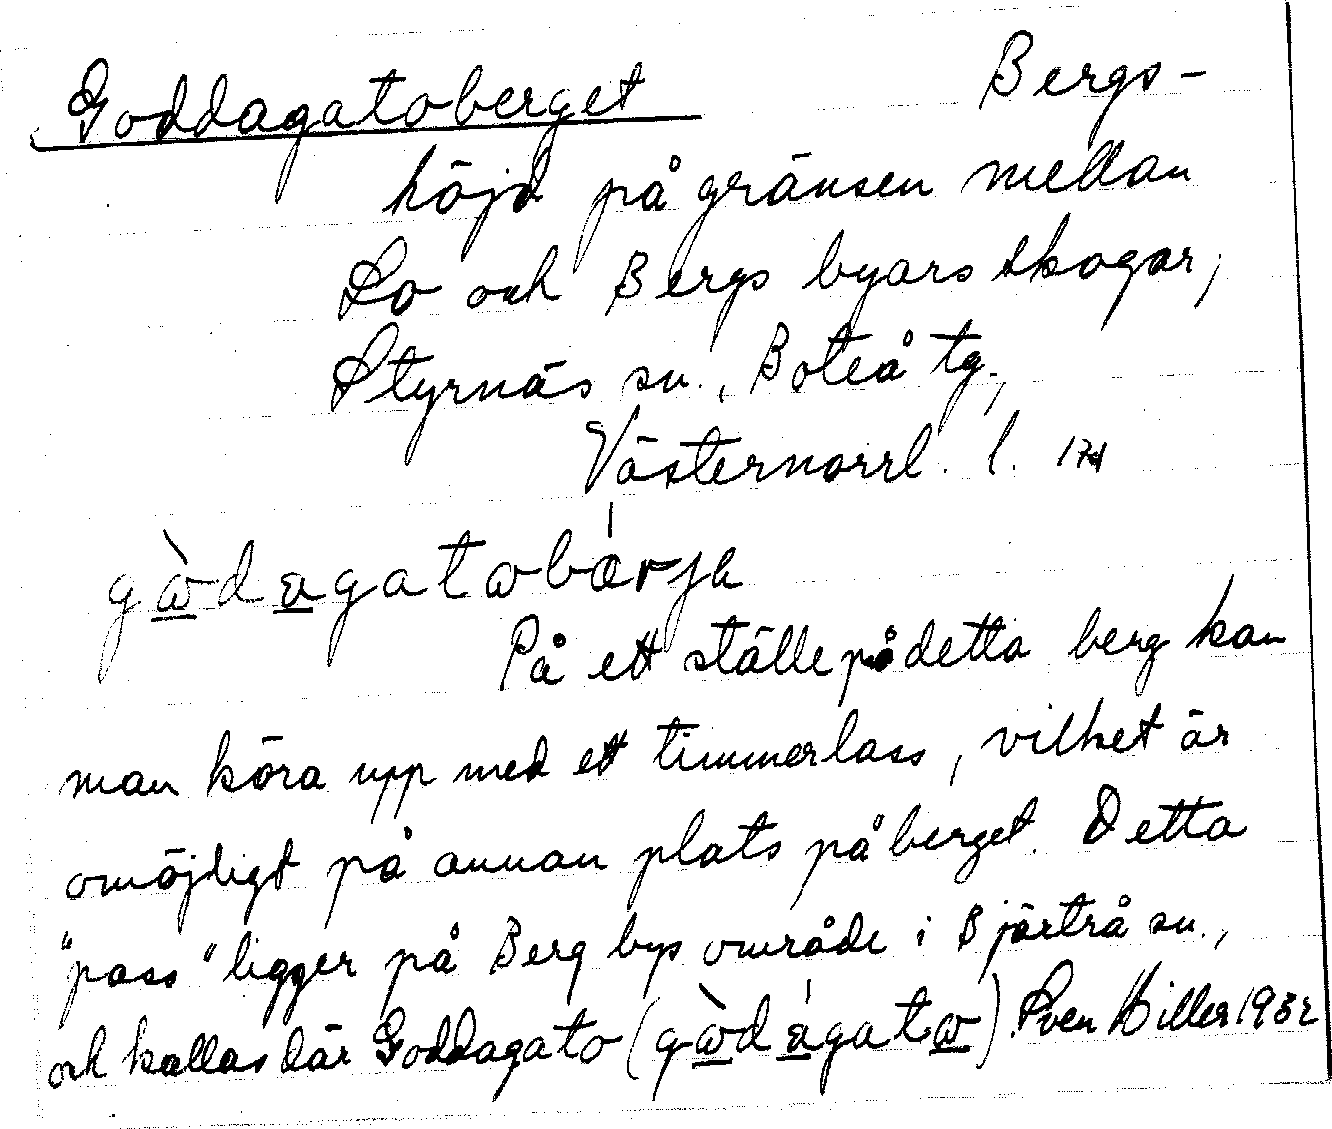 Goddagatoberget Bergs-
höjd på gränsen mellan
Lo och Bergs byars skogar,
Styrnäs sn., Boteå tg.,
Västernorrl. l.
gωdagatωbærjə
På ett ställe på detta berg kan
man köra upp med ett timmerlass, vilket är
omöjligt på annan plats på berget. Detta
"pass" ligger på Berg bys område i Bjärtrå sn.,
och kallas där Goddagato (gὼdágatω) Sven Hiller 1932